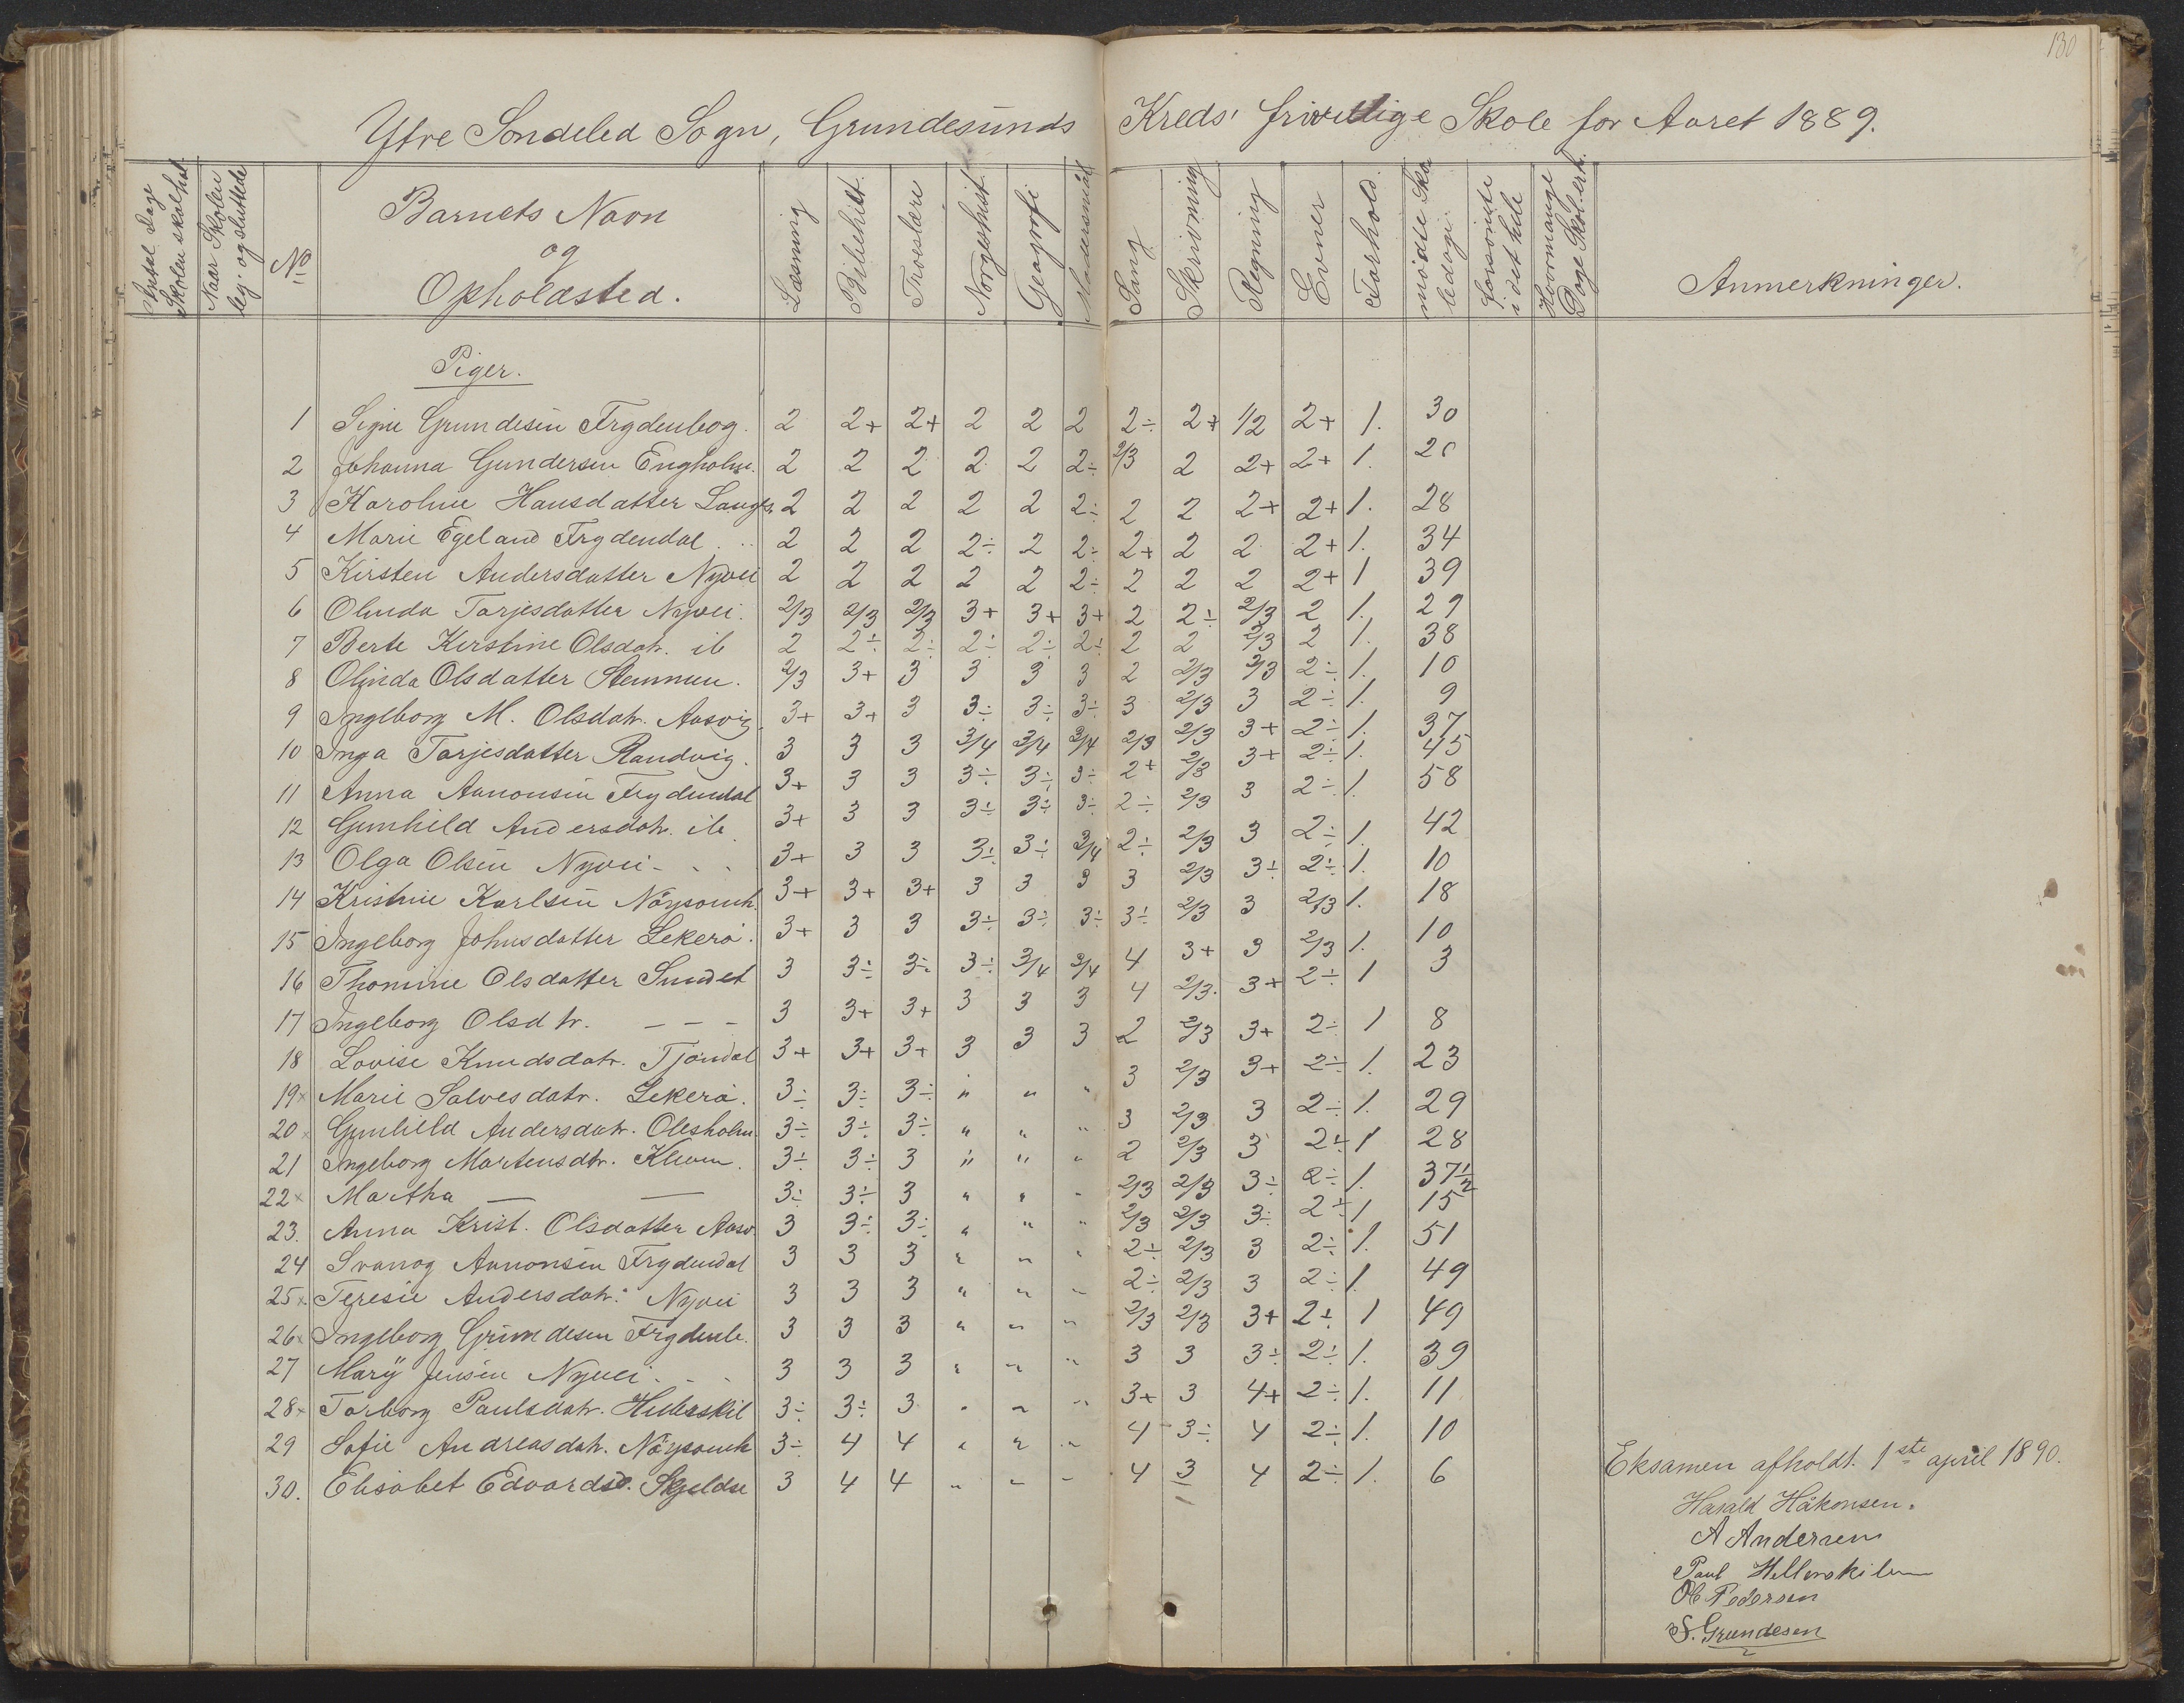 130
Ytre Søndeled Sogn, Grundesunds Kreds' frivillige Skole for Aaret 1889.
Antal Dage Skolen skal hol
Naar Skolen beg. og sluttede
No
Barnets Navn
og
Opholdsted.
Læsning
Bibelhist.
Troeslære
Norgeshist.
Geografi
Modersmål
Sang
Skrivning
Regning
Evner
Forhold.
mødte Sko ledage
forsømte i det hele
Hvormange Dage Skol. erh.
Anmerkninger.
Piger.
1 Signe Grundesen Frydenbog. 2 2+ 2+ 2 2 2 2÷ 2+ 1/2 2+ 1. 30
2 Johanna Gundersen Engholm. 2 2 2 2 2 2÷ 2/3 2 2+ 2+ 1. 20
3 Karoline Hansdatter Langs. 2 2 2 2 2 2÷ 2 2 2+ 2+ 1. 28
4 Marie Egeland Frydendal 2 2 2 2÷ 2 2÷ 2+ 2 2 2+ 1. 34
5 Kirsten Andersdatter Nyvei 2 2 2 2 2 2÷ 2 2 2 2+ 1 39
6 Olinda Tarjesdatter Nyvei. 2/3 2/3 2/3 3+ 3+ 3+ 2 2÷ 2/3 2 1. 29
7 Berte Kirstine Olsdatr. ib 2 2÷ 2÷ 2÷ 2÷ 2÷ 2 2 2/3 2 1. 38
8 Olinda Olsdatter Stemmen. 2/3 3+ 3 3 3 3 2 2/3 2/3 2÷ 1. 10
9 Ingeborg M. Olsdatr. Aasvig. 3+ 3+ 3 3÷ 3÷ 3÷ 3 2/3 3 2÷ 1. 9
10 Inga Tarjesdatter Randvig. 3 3 3 3/4 3/4 3/4 2/3 2/3 3+ 2÷ 1. 37
11 Anna Aanonsen Frydendal 3+ 3 3 3÷ 3÷ 3÷ 2+ 2/3 3+ 2÷ 1. 45
12 Gunhild Andersdatr. ib 3+ 3 3 3÷ 3÷ 3÷ 2÷ 2/3 3 2÷ 1. 58
13 Olga Olsen Nyvei 3+ 3 3 3÷ 3÷ 3/4 2÷ 2/3 3 2÷ 1. 42
14 Kristine Karlsen Nöysomh. 3+ 3+ 3+ 3 3 3 3 2/3 3÷ 2÷ 1. 10
15 Ingeborg Johnsdatter Lekerø. 3+ 3 3 3÷ 3÷ 3÷ 3÷ 2/3 3 2/3 1. 18
16 Thomine Olsdatter Sundet 3 3÷ 3÷ 3÷ 3/4 3/4 4 3+ 3 2/3 1. 10
17 Ingeborg Olsdtr. — — — 3 3+ 3+ 3 3 3 4 2/3. 3+ 2÷ 1 3
18 Lovise Knudsdatr. Tjøndal 3+ 3+ 3+ 3 3 3 2 2/3 3+ 2÷ 1 8
19× Marie Salvesdatr. Lekerø. 3÷ 3÷ 3÷ " " " 3 2/3 3+ 2÷ 1. 23
20× Gunhild Andersdatr. Olesholm 3÷ 3÷ 3÷ " " " 3 2/3 3 2÷ 1. 29
21 Ingeborg Martensdtr. Kleven. 3÷ 3÷ 3 " " " 2 2/3 3 2÷ 1 28
22× Martha — — 3÷ 3÷ 3 " " " 2/3 2/3 3÷ 2÷ 1. 37½
23. Anna Krist. Olsdatter Aasv. 3 3÷ 3÷ " " " 2/3 2/3 3÷ 2÷ 1 15
24 Svanog Aanonsen Frydendal 3 3 3 " " " 2÷ 2/3 3 2÷ 1. 51
25× Teresie Andersdatr. Nyvei 3 3 3 " " " 2÷ 2/3 3 2÷ 1. 49
26× Ingeborg Grundesen Frydenb. 3 3 3 " " " 2/3 2/3 3+ 2÷ 1 49
27 Marÿ Jensen Nyvei 3 3 3 " " " 3 3 3÷ 2÷ 1. 39
28× Torborg Paulsdatr. 3÷ 3÷ 3 " " " 3+ 3 4+ 2÷ 1. 11
29 Sofie Andreasdatr. Nöysomh 3÷ 4 4 " " " 4 3÷ 4 2÷ 1. 10
30. Elisabet Edvards. 3 4 4 " " " 4 3 4 2÷ 1. 6
Eksamen afholdt. 1ste april 1890.
Harald Håkonsen.
A Andersen
Paul Hellerskilen
Ob Pedersen
S. Grundesen